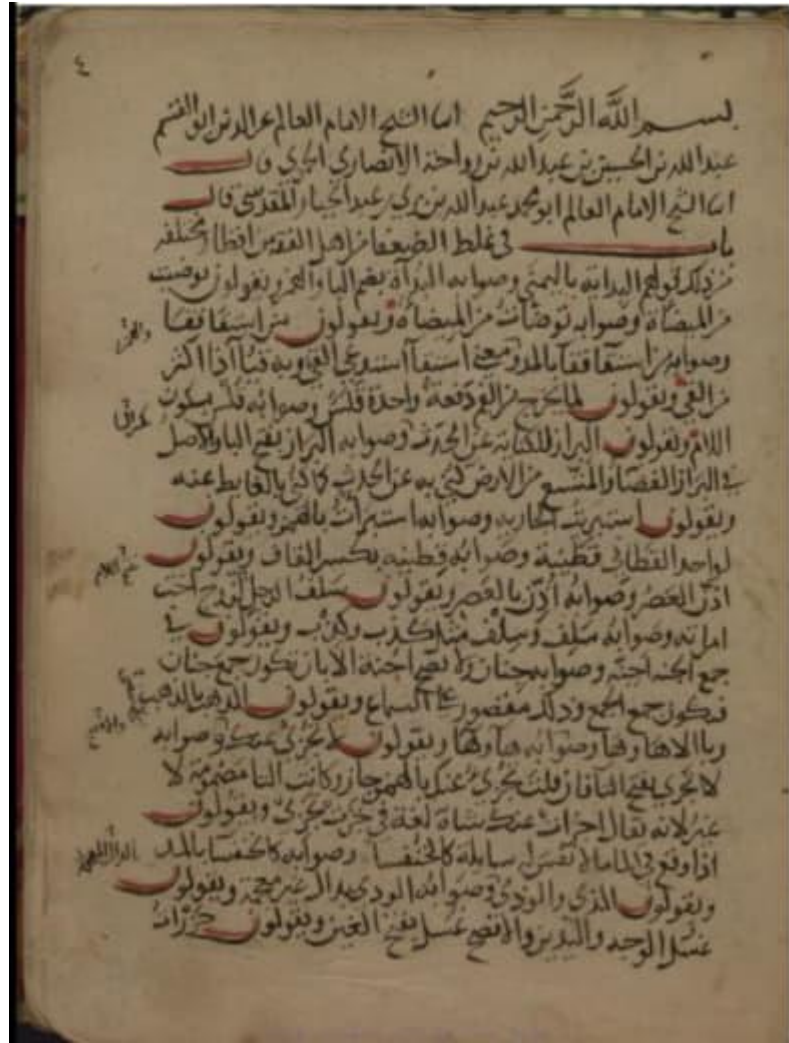 ٤
بسم الله الرحمن الرحيم انا الشيخ الامام العالم عز الدين ابو القسم
عبد الله بن الحسين بن عبد الله بن رواحة الانصاري الحموي قال
انا الشيخ الامام العالم ابو محمد عبد الله بن بري بن عبد الجبار المقدسي قال
باب في غلط الضعفا من اهل الفقه من الفاظ مختلفه
من ذلك قولهم البداية باليمنى وصوابه البدأة بضم البا والهمز ويقولون توضيت
من الميضاة وصوابه توضأت من الميضأة ويقولون من استقا فقا
والهمز
وصوابه من استقا فقا بالمد ومعنى استقا استدعى القي وبه قيأ اذا اكثر
من القي ويقولون لما يخرج من الفم دفعة واحدة قلس وصوابه قلس بسكون
اللام ويقولون البراز للكناية عن الحدث وصوابه البراز بفتح البا والاصل
في البراز الفضا والمتسع من الارض كني به عن الحدث كما كني بالغايط عنه
ويقولون استبريت الجارية وصوابه استبرأت بالهمز ويقولون
لواحد القطاني قطنية وصوابه قطنيه بكسر القاف ويقولون
اذن العصر وصوابه اذن بالعصر ويقولون سلف الرجل لزوج اخت
امراته وصوابه سلف وسلف مثل كذب وكذب ويقولون في
جمع الجنه اجنه وصوابه جنان ولا يصح اجنة الا بان يكون جمع جنان
فيكون جمع الجمع وذلك مقصور على السماع ويقولون الذهب بالذهب
ربا الا ها وها وصوابه هاء وهاء ويقولون لا تجزئ عنك وصوابه
لا تجزي بفتح التا فان قلت تجزئ عنك بالهمز جاز وكانت التا مضمومة لا
غير لانه يقال اجزات عنك شاة لغة في جزت تجزي ويقولون
اذا وقع في الما ما لا نفس له سايلة كالخنفسا وصوابه كالخنفسا بالمد
ويقولون المذي والوذي وصوابه الودي بدال غير معجمة ويقولون
غسل الوجه واليدين والافصح غسل بفتح الغين ويقولون